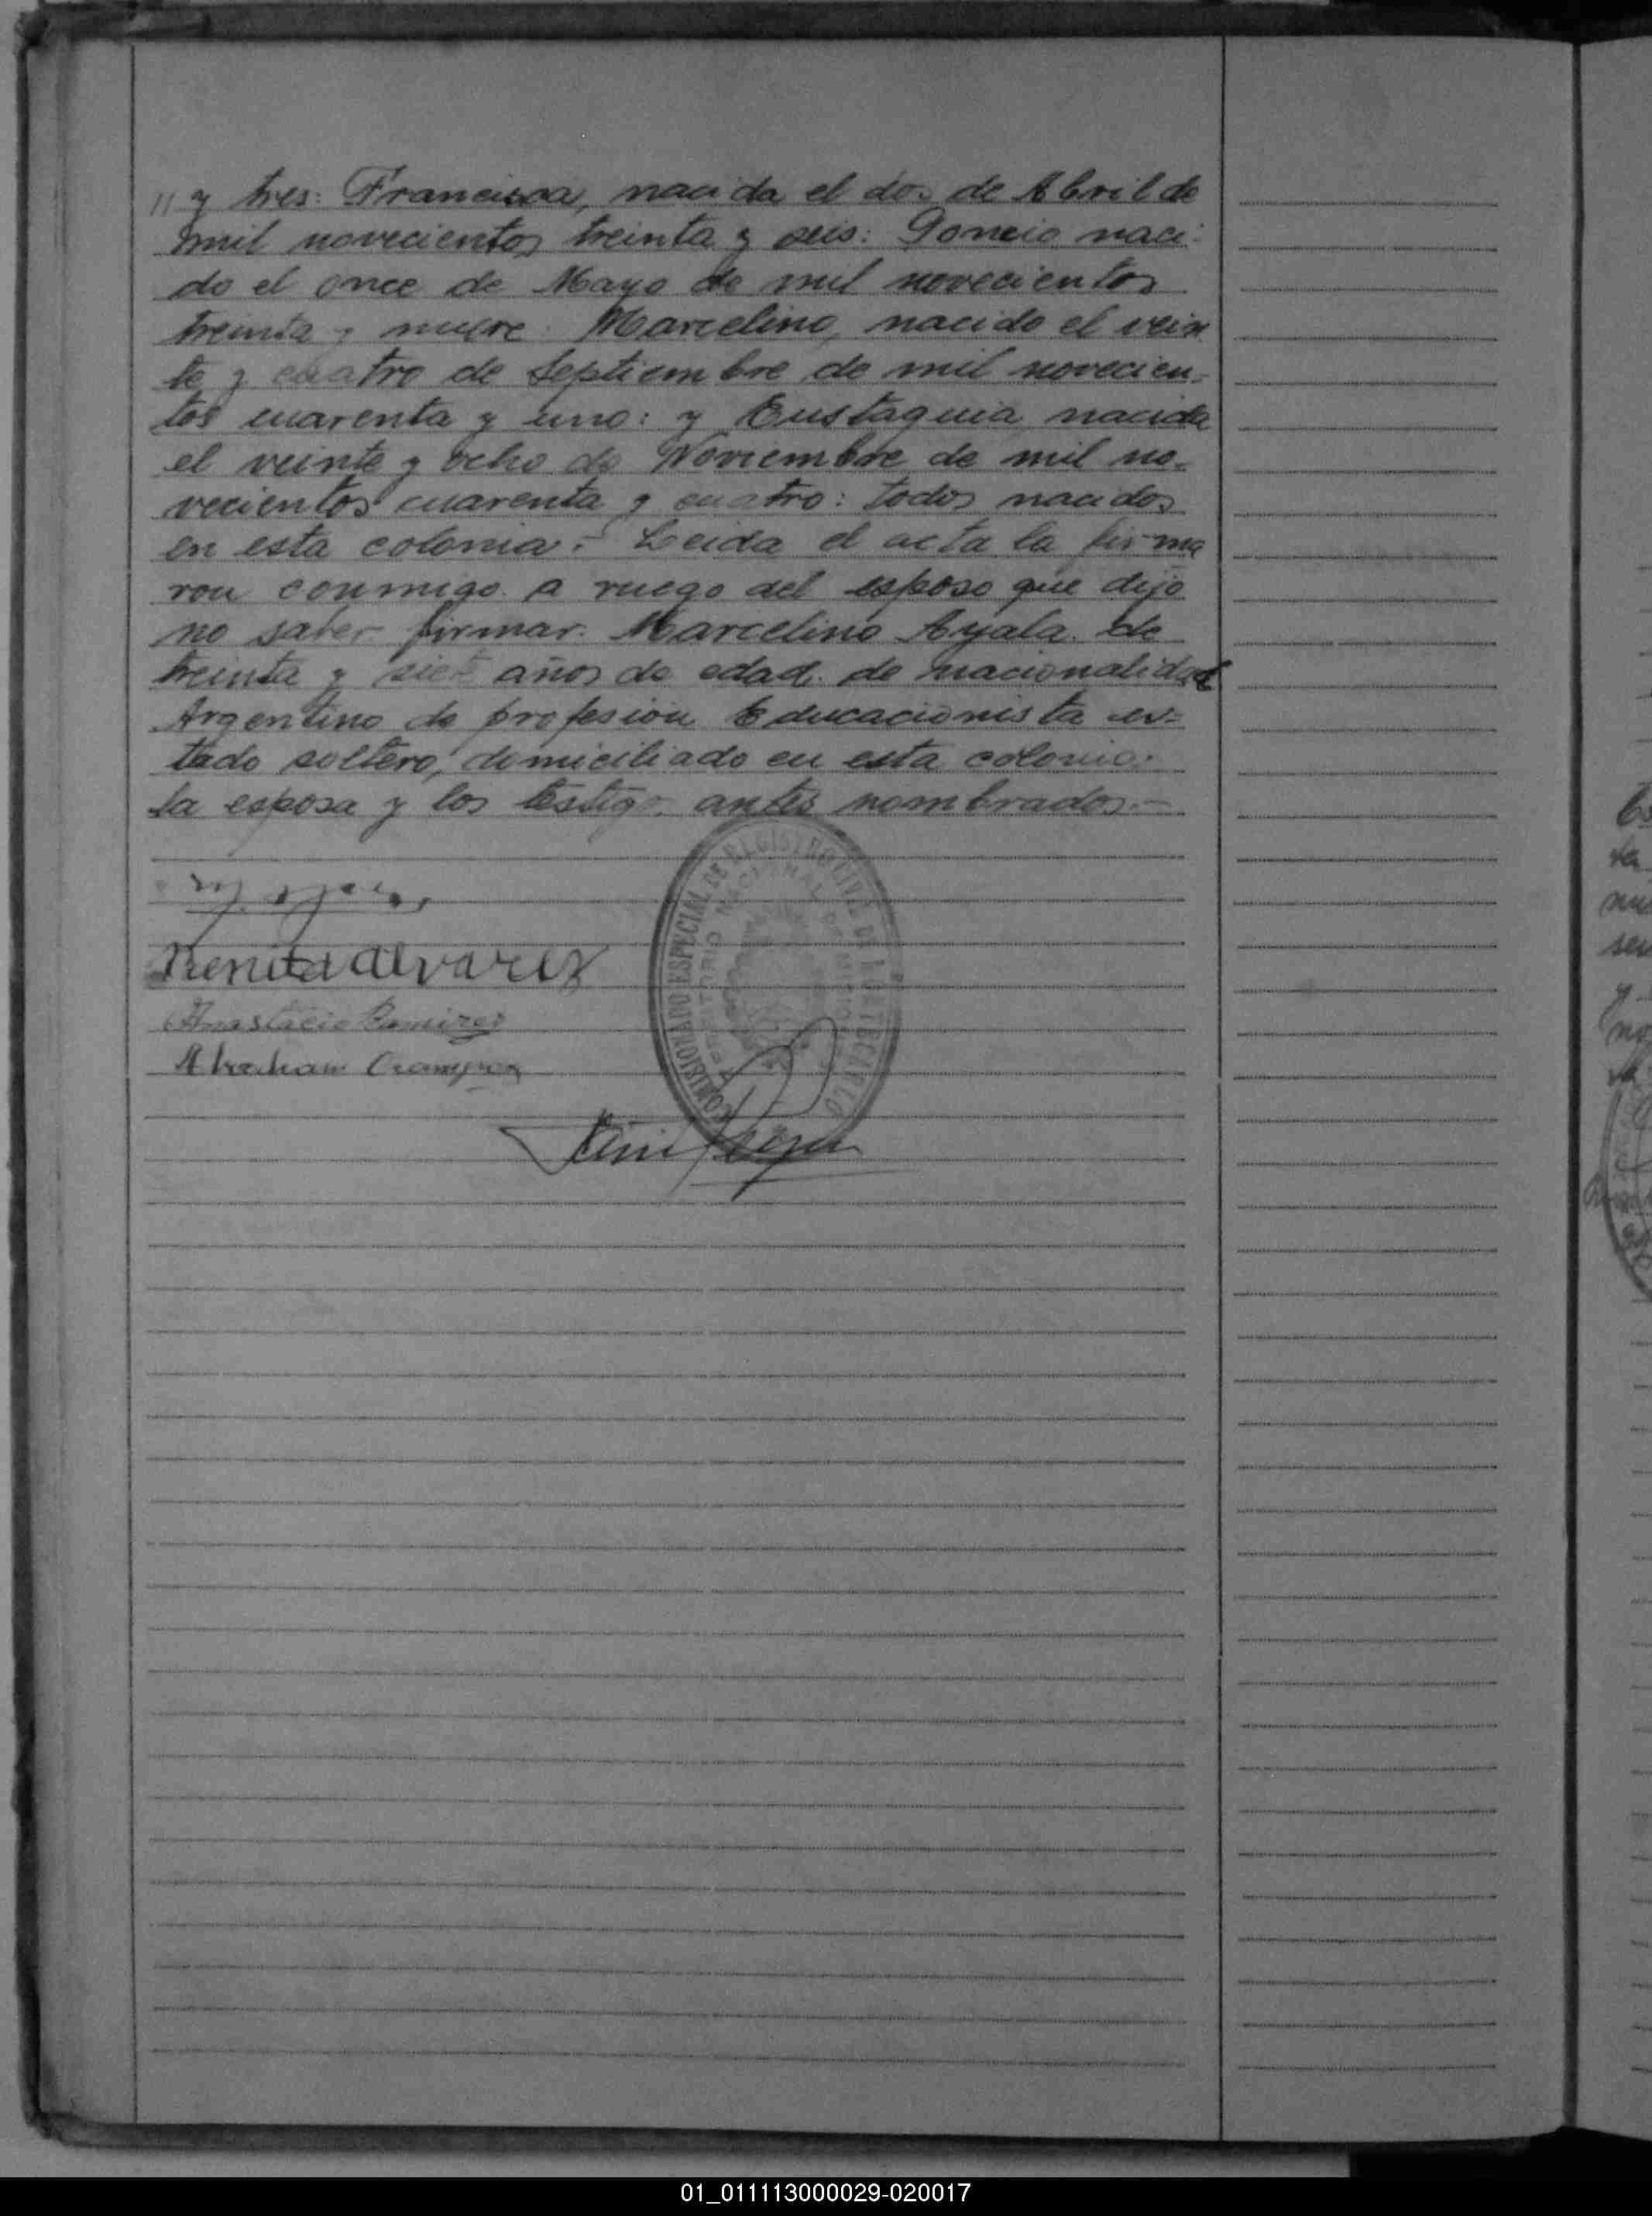 " y tres: Francisca, nacida el dos de Abril de
mil novecientos treinta y seis: Poncio naci-
do el once de Mayo de mil novecientos
treinta y nueve: Marcelino, nacido el vein
te y cuatro de Septiembre de mil novecien-
tos cuarenta y uno: y Eustaquia nacida
el veinte y ocho de Noviembre de mil no-
vecientos cuarenta y cuatro: todos nacidos
en esta colonia.- Leida el acta la firma
ron conmigo a ruego del esposo que dijo
no saber firmar. Marcelino Ayala. de
treinta y siete años de edad. de nacionalidad
Argentino de profesion Educacionista es-
tado soltero, domiciliado en esta colonia.
la esposa y los testigos antes nombrados.-
COMISIONADO ESPECIAL DE REGISTRO CIVIL DE
TERRITORIO NACIONAL DE MISIONES
Benita Alvarez
Anastacio Ramirez
Abraham
01_011113000029-020017